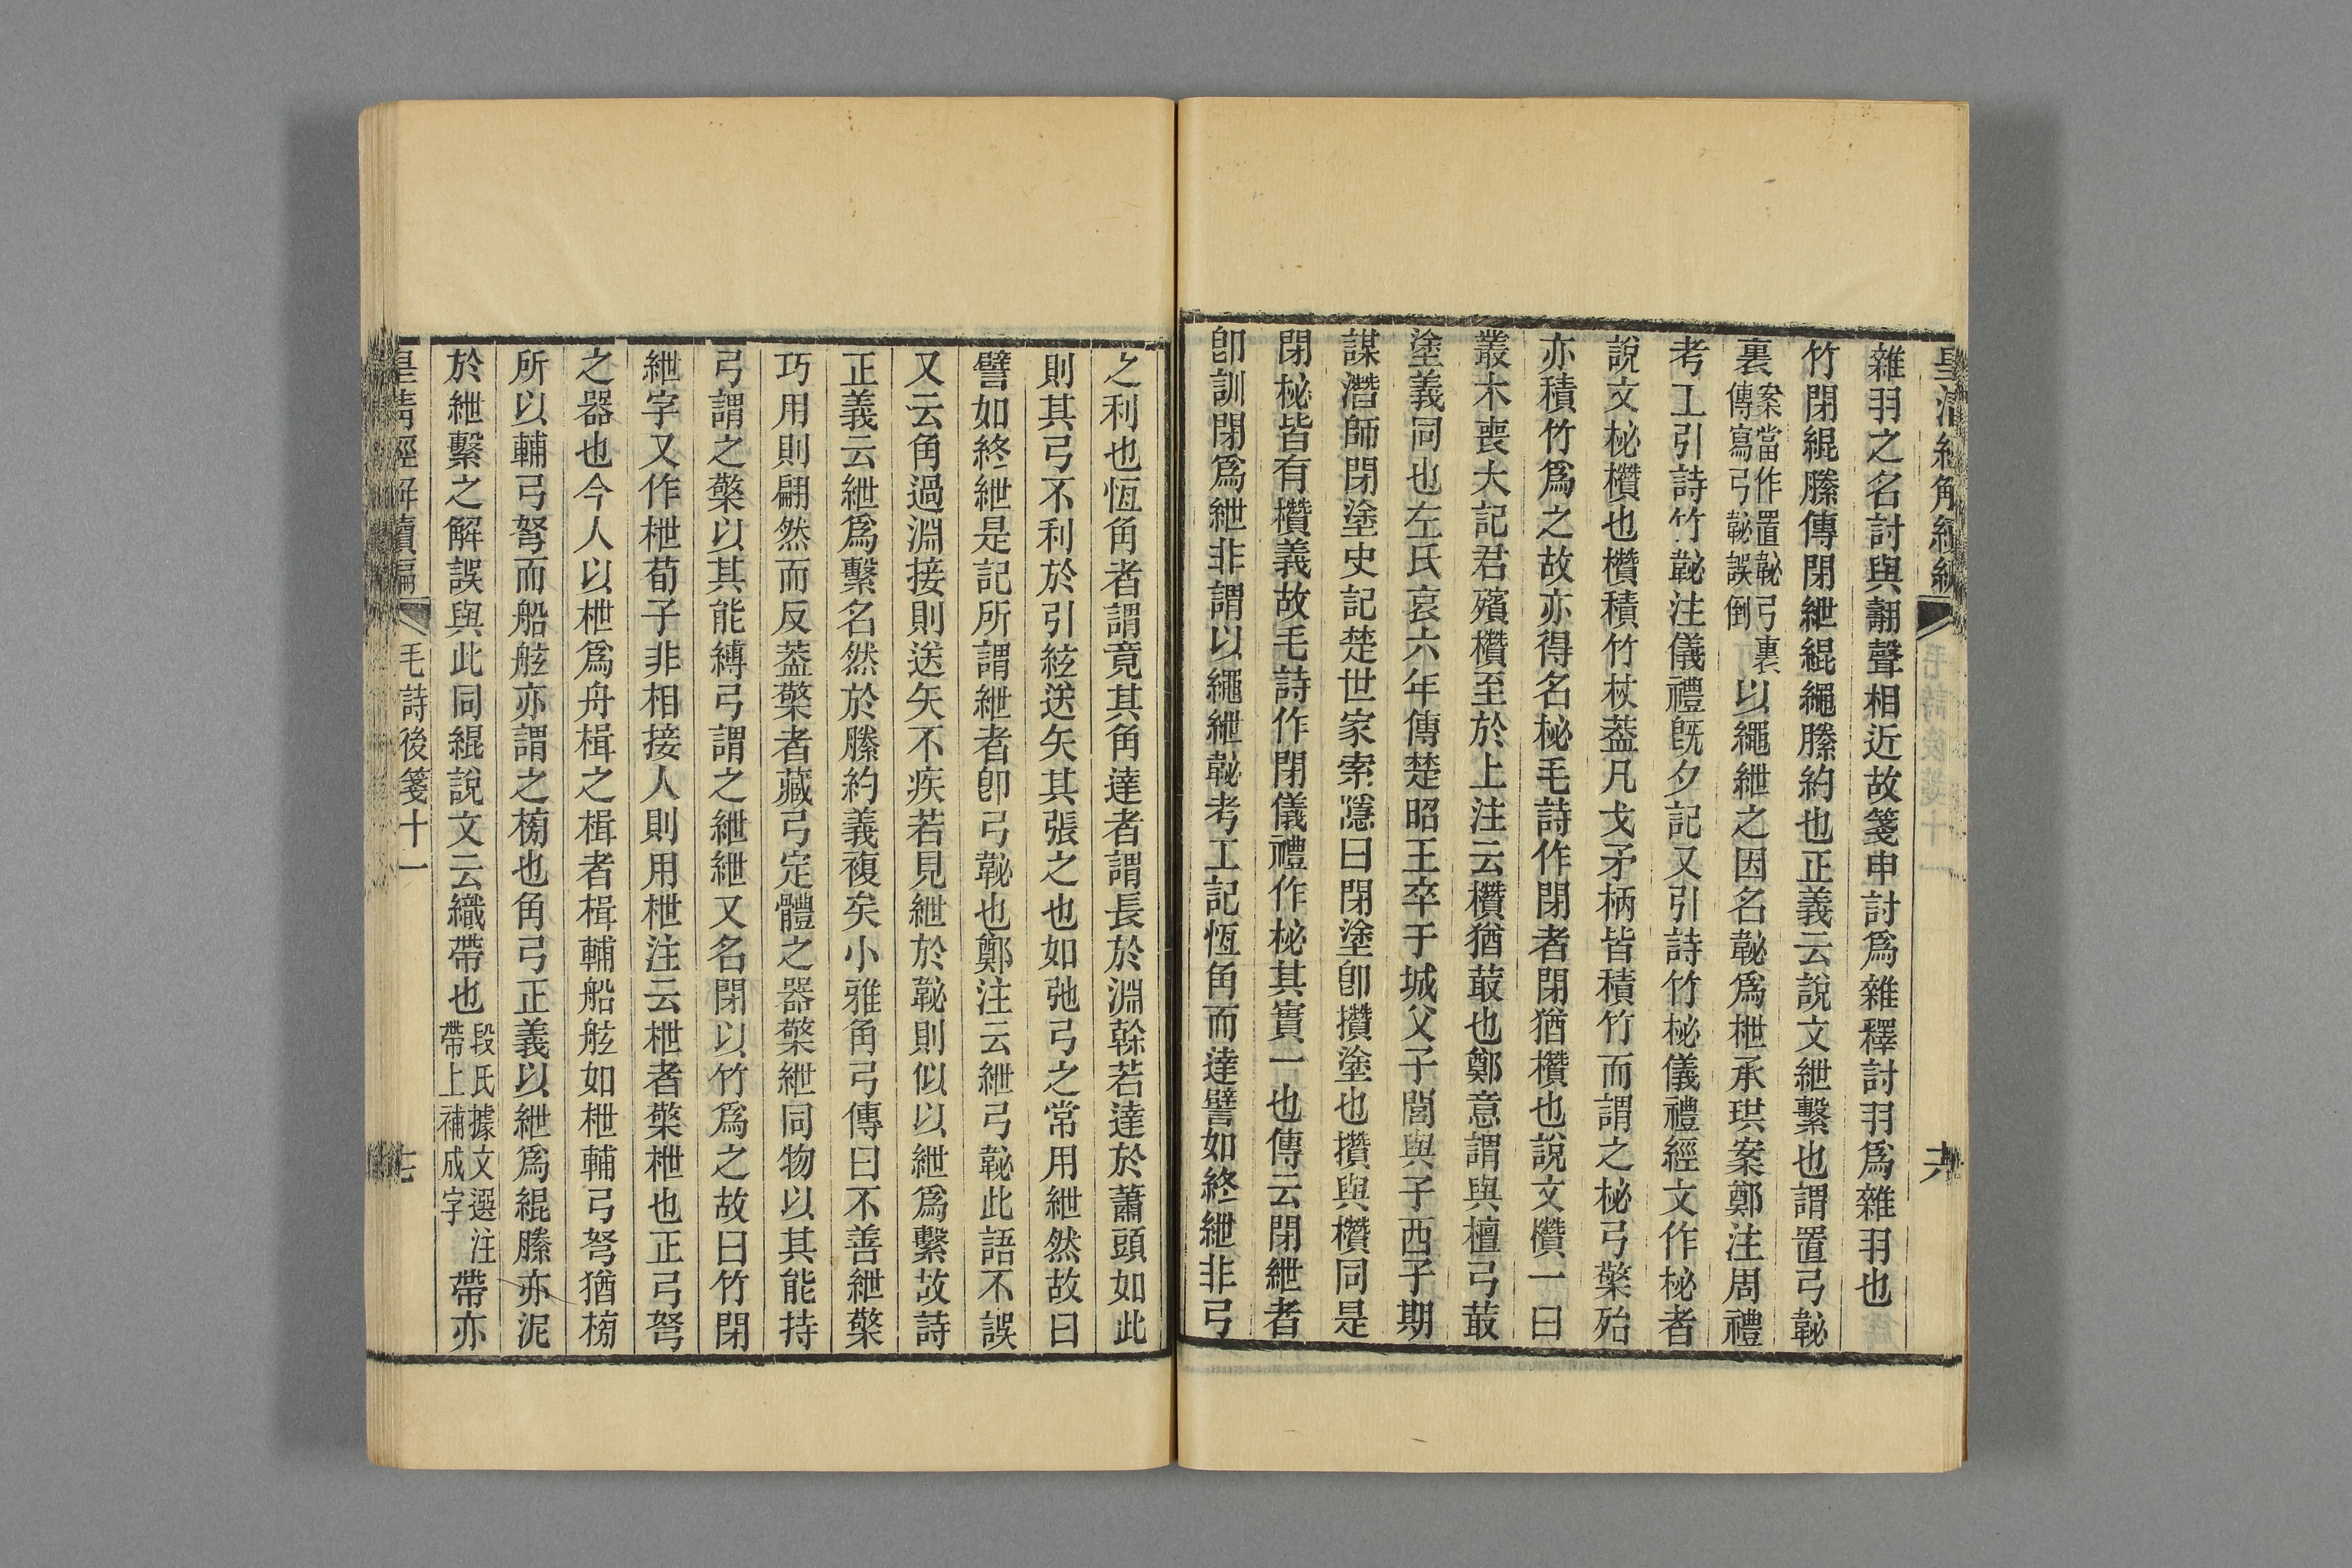 皇清經解續編
雜羽之名討與翿聲相近故箋申討爲雜釋討羽爲雜羽也
竹閉緄縢傳閉紲緄繩縢約也正義云說文紲繫也謂置弓䪐
裏案當作置䪐弓裏傳寫弓䪐誤倒以繩紲之因名䪐爲枻承珙案鄭注周禮
考工引詩竹䪐注儀禮旣夕記又引詩竹柲儀禮經文作柲者
說文柲欑也欑積竹杖葢凡戈矛柄皆積竹而謂之柲弓檠殆
亦積竹爲之故亦得名柲毛詩作閉者閉猶欑也說文欑一曰
叢木喪大記君殯欑至於上注云欑猶菆也鄭意謂與檀弓菆
塗義同也左氏哀六年傳楚昭王卒于城父子閭與子西子期
謀潛師閉塗史記楚世家索隱曰閉塗卽攢塗也攢與欑同是
閉柲皆有欑義故毛詩作閉儀禮作柲其實一也傳云閉紲者
卽訓閉爲紲非謂以繩紲䪐考工記恆角而達譬如終紲非弓
之利也恆角者謂竟其角達者謂長於淵榦若達於蕭頭如此
則其弓不利於引絃送矢其張之也如弛弓之常用紲然故曰
譬如終紲是記所謂紲者卽弓䪐也鄭注云紲弓䪐此語不誤
又云角過淵接則送矢不疾若見紲於䪐則似以紲爲繫故詩
正義云紲爲繫名然於縢約義複矣小雅角弓傳曰不善紲檠
巧用則翩然而反葢檠者藏弓定體之器檠紲同物以其能持
弓謂之檠以其能縛弓謂之紲紲又名閉以竹爲之故曰竹閉
紲字又作枻荀子非相接人則用枻注云枻者檠枻也正弓弩
之器也今人以枻爲舟楫之楫者楫輔船舷如枻輔弓弩猶榜
所以輔弓弩而船舷亦謂之榜也角弓正義以紲爲緄縢亦泥
於紲繫之解誤與此同緄說文云織帶也段氏據文選注帶上補成字帶亦
皇清經解續編 毛詩後箋十一